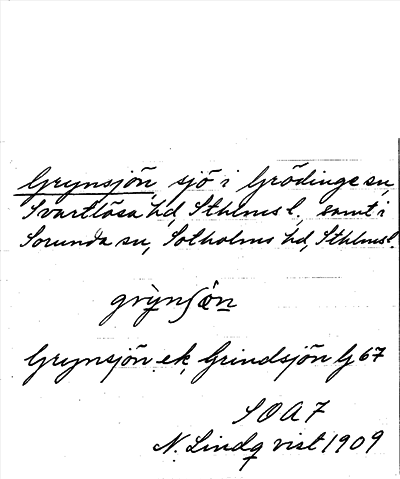 Grynsjön, sjö i Grödinge sn,
Svartlösa hd, Sthlms l. samt i
Sorunda sn, Sotholms hd, Sthlms l.
grỳnʃön
Grynsjön ek, Grindsjön G 67
SOA 7
N. Lindqvist 1909